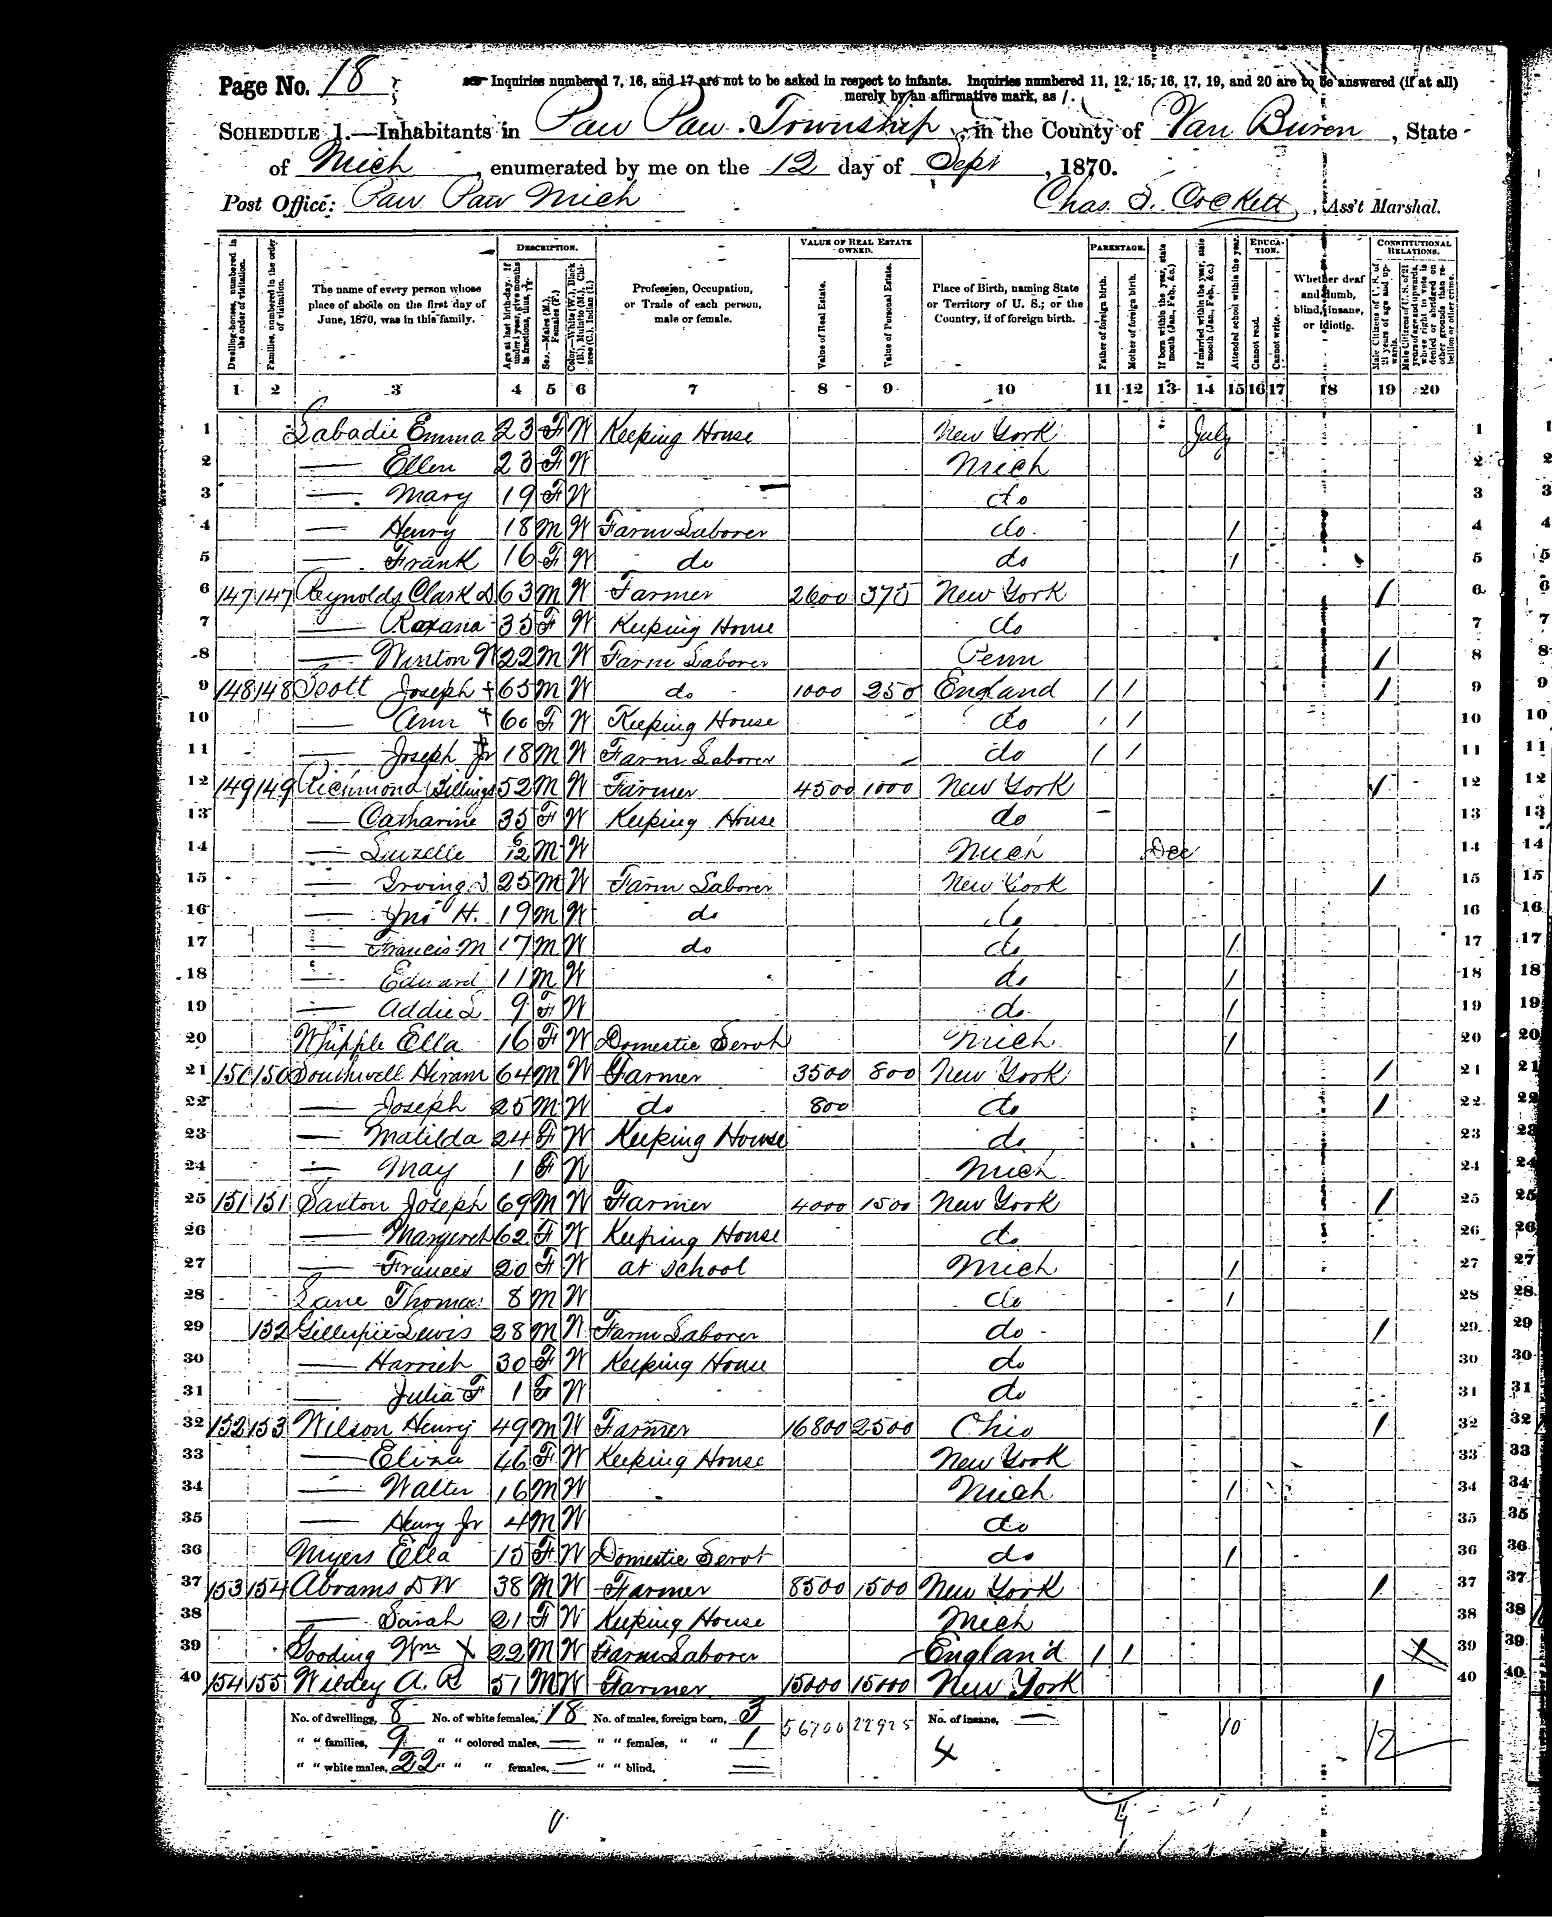 Page No. 18
Inquiries numbered 7, 16, and 17 are not to be asked in respect to infants. Inquiries numbered 11, 12, 15, 16, 17, 19, and 20 are to be answered (if at all)
merely by an affirmative mark, as /.
SCHEDULE 1.—Inhabitants in Paw Paw Township, in the County of Van Buren, State
of Mich, enumerated by me on the 12 day of Sept, 1870.
Post Office: Paw Paw Mich Chas. S. Cockett, Ass't Marshal.
DESCRIPTION. VALUE OF REAL ESTATE OWNED. PARENTAGE. EDUCATION. CONSTITUTIONAL RELATIONS.
Dwelling-houses, numbered in the order of visitation.
Families, numbered in the order of visitation.
The name of every person whose place of abode on the first day of June, 1870, was in this family.
Age at last birth-day. If under 1 year, give months in fractions, thus, 3/12.
Sex.—Males (M.), Females (F.)
Color.—White (W.), Black (B.), Mulatto (M.), Chinese (C.), Indian (I.)
Profession, Occupation, or Trade of each person, male or female.
Value of Real Estate.
Value of Personal Estate.
Place of Birth, naming State or Territory of U. S.; or the Country, if of foreign birth.
Father of foreign birth.
Mother of foreign birth.
If born within the year, state month (Jan., Feb., &c.)
If married within the year, state month (Jan., Feb., &c.)
Attended school within the year.
Cannot read.
Cannot write.
Whether deaf and dumb, blind, insane, or idiotic.
Male Citizens of U. S. of 21 years of age and upwards.
Male Citizens of U. S. of 21 years of age and upwards, whose right to vote is denied or abridged on other grounds than rebellion or other crime.
1 2 3 4 5 6 7 8 9 10 11 12 13 14 15 16 17 18 19 20
1 Labadie Emma 23 F W Keeping House New York July 1
2 — Ellen 23 F W Mich 2
3 — Mary 19 F W do 3
4 — Henry 18 M W Farm Laborer do / 4
5 — Frank 16 F W do do / 5
6 147 147 Reynolds Clark D 63 M W Farmer 2600 375 New York / 6
7 — Roxana 35 F W Keeping House do 7
8 — Winton W 22 M W Farm Laborer Penn / 8
9 148 148 Scott Joseph + 65 M W do 1000 250 England / / / 9
10 — Ann + 60 F W Keeping House do / / 10
11 — Joseph Jr 18 M W Farm Laborer do / / 11
12 149 149 Richmond Billings 52 M W Farmer 4500 1000 New York / 12
13 — Catharine 35 F W Keeping House do 13
14 — Luzelle 6/12 M W Mich Dec 14
15 — Irving D 25 M W Farm Laborer New York / 15
16 — Jno H. 19 M W do do 16
17 — Francis M 17 M W do do / 17
18 — Edward 11 M W do / 18
19 — Addie L 9 F W do / 19
20 Whipple Ella 16 F W Domestic Servt Mich / 20
21 150 150 Southwell Hiram 64 M W Farmer 3500 800 New York / 21
22 — Joseph 25 M W do 800 do / 22
23 — Matilda 24 F W Keeping House do 23
24 — May 1 F W Mich 24
25 151 151 Saxton Joseph 69 M W Farmer 4000 1500 New York / 25
26 — Margeret 62 F W Keeping House do 26
27 — Frances 20 F W at school Mich / 27
28 Lane Thomas 8 M W do / 28
29 152 Gillespie Lewis 28 M W Farm Laborer do / 29
30 — Harriet 30 F W Keeping House do 30
31 — Julia F 1 F W do 31
32 152 153 Wilson Henry 49 M W Farmer 16800 2500 Ohio / 32
33 — Eliza 46 F W Keeping House New York 33
34 — Walter 16 M W Mich / 34
35 — Henry Jr 4 M W do 35
36 Myers Ella 15 F W Domestic Servt do / 36
37 153 154 Abrams D W 38 M W Farmer 8500 1500 New York / 37
38 — Sarah 21 F W Keeping House Mich 38
39 Gooding Wm X 22 M W Farm Laborer England / / X 39
40 154 155 Wildey A. R 51 M W Farmer 15000 15000 New York / 40
No. of dwellings, 8 No. of white females, 18 No. of males, foreign born, 3 56700 22925 No. of insane, — 10 12
" " families, 9 " " colored males, — " " females, " " 1 4
" " white males, 22 " " " females, — " " blind, —
4